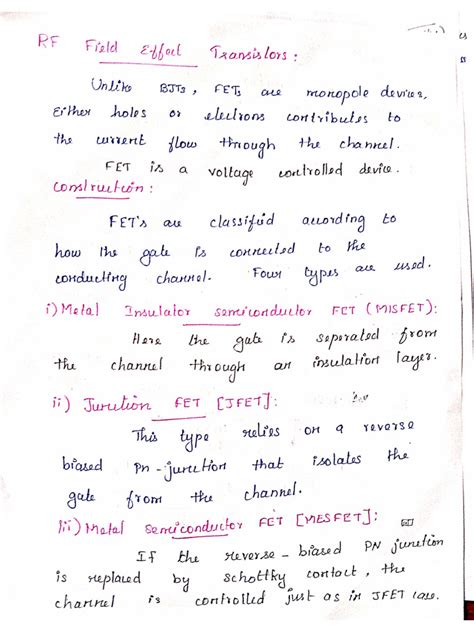 RF Field Effect Transistors:
Unlike BJTs, FETs are monopole devices,
Either holes or electrons contributes to
the current flow through the channel.
FET is a voltage controlled device.
Construction:
FET's are classified according to
how the gate is connected to the
conducting channel. Four types are used.
i) Metal Insulator semiconductor FET (MISFET):
Here the gate is seperated from
the channel through an insulation layer.
ii) Junction FET [JFET]:
This type relies on a reverse
biased Pn-junction that isolates the
gate from the channel.
iii) Metal semiconductor FET [MESFET]:
If the reverse-biased PN junction
is replaced by schottky contact, the
channel is controlled just as in JFET case.